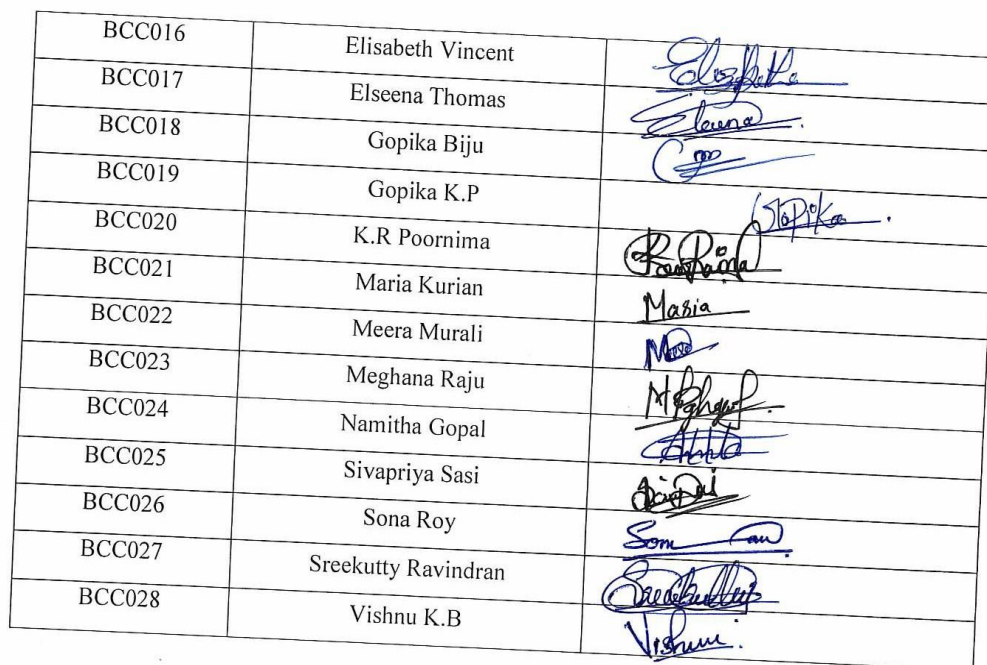 BCC016 Elisabeth Vincent Elizabetha
BCC017 Elseena Thomas
BCC018 Gopika Biju
BCC019 Gopika K.P Gopika
BCC020 K.R Poornima
BCC021 Maria Kurian Maria
BCC022 Meera Murali
BCC023 Meghana Raju
BCC024 Namitha Gopal
BCC025 Sivapriya Sasi
BCC026 Sona Roy
BCC027 Sreekutty Ravindran
BCC028 Vishnu K.B Vishnu